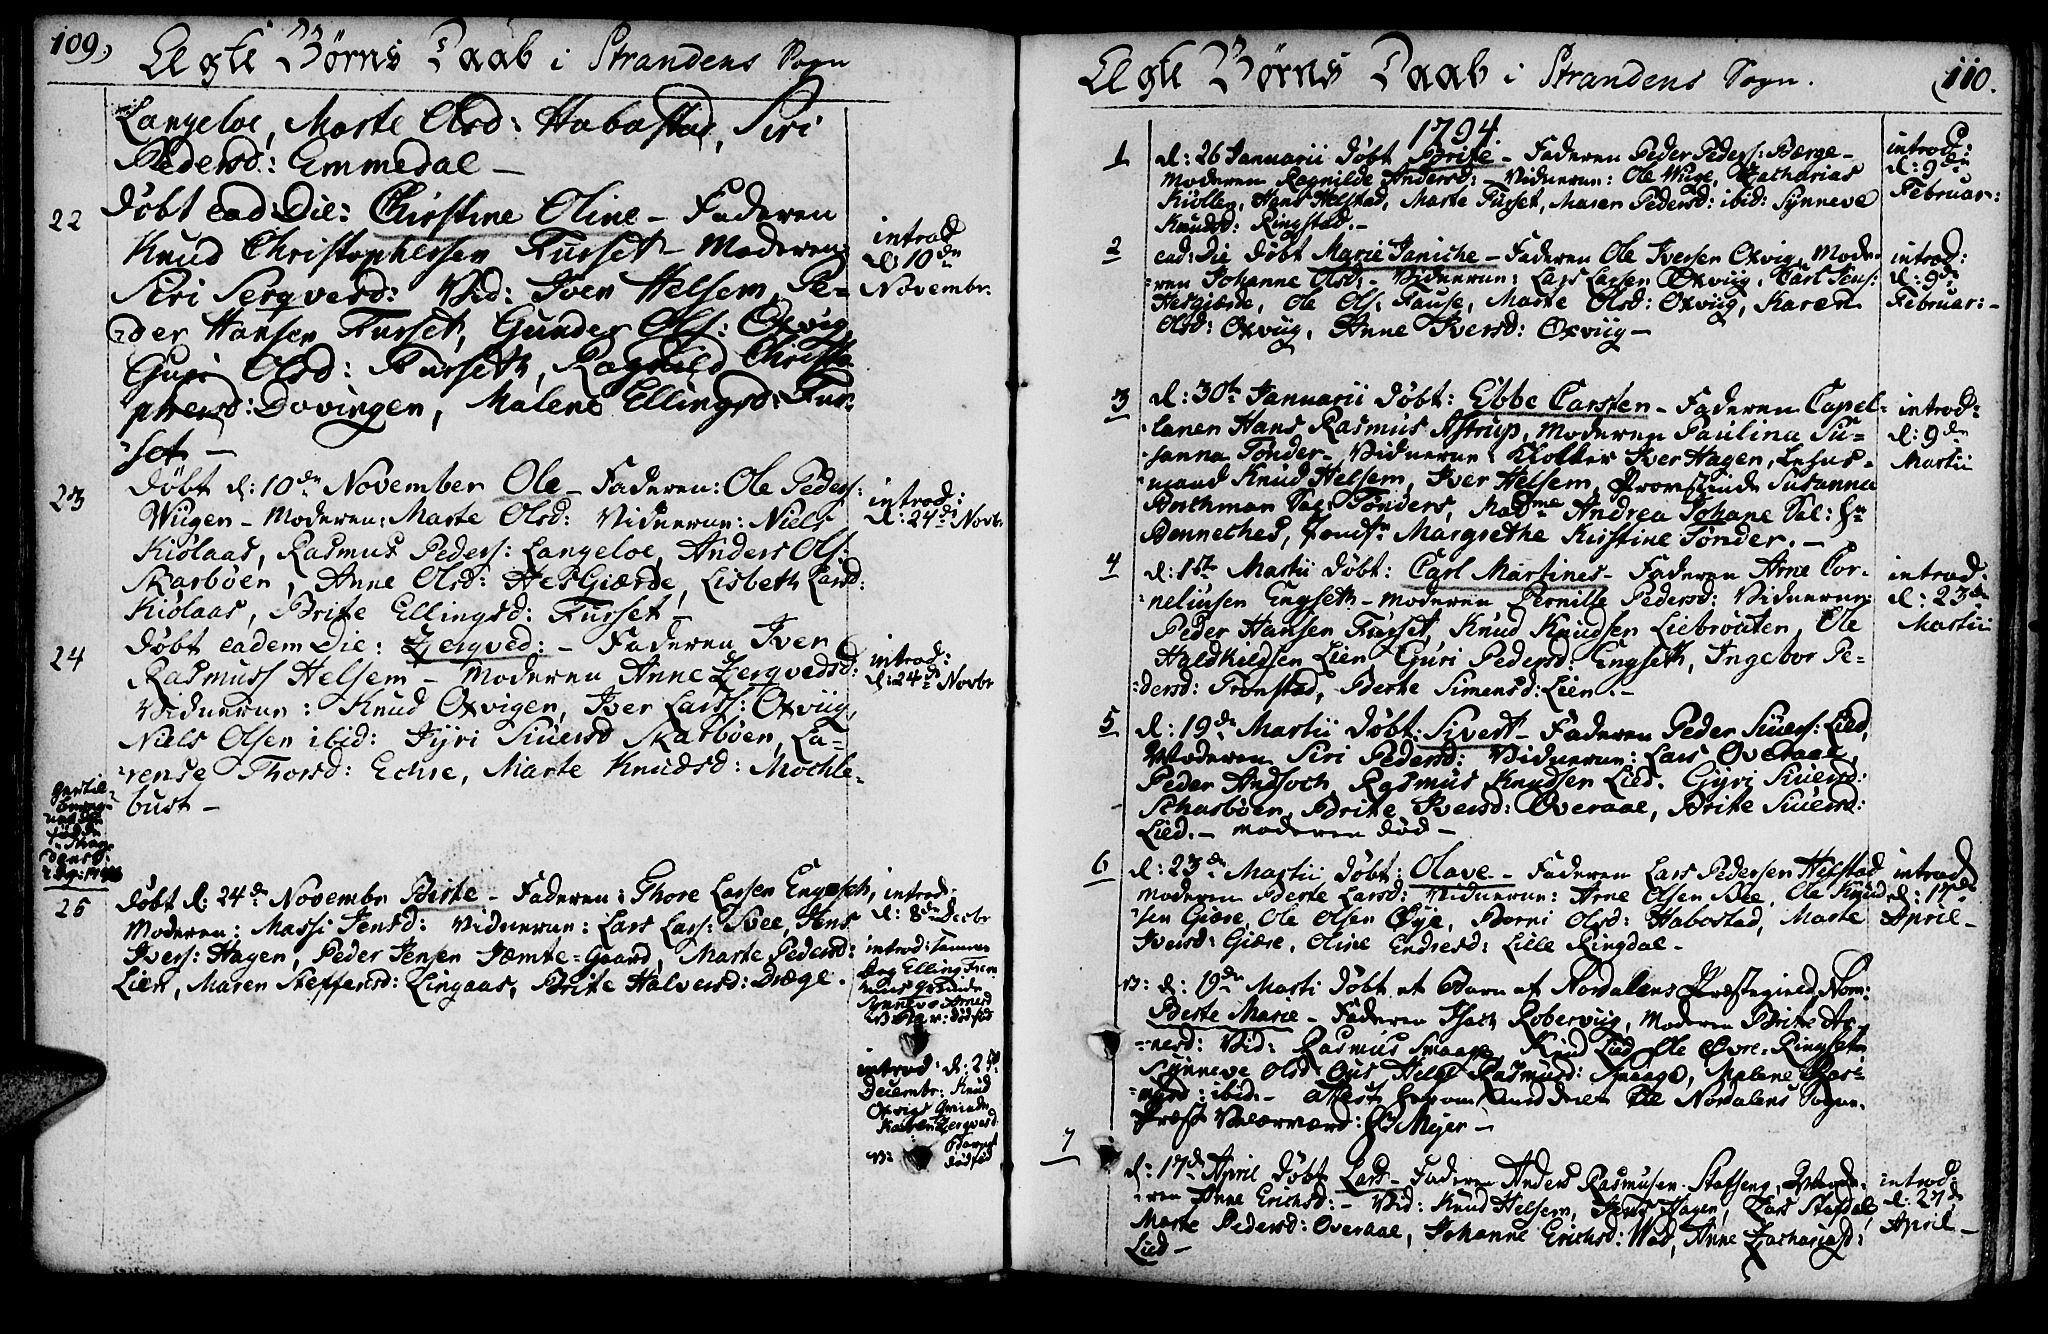 109.
Ægte Børns Daab i Strandens Sogn
Langeloe, Marte Olsd: Habostad, Siri
Pedersd: Emmedal —
22
Døbt ead: Die: Christine Oline — Faderen
Knud Christophersen Furseth — Moderen
Siri Sergversd: Vid: Iver Helsem, Pe-
der Hansen Furseth, Gunder Ols: Oxvig,
Guri Olsd: Furseth, Ragnild Christo-
phersd: Dovingen, Malene Ellingsd: Fur-
set —
introd
d: 10de
Novembr:
23
Døbt d: 10de November Ole — Faderen: Ole Peders:
Wiigen — Moderen: Marte Olsd: Vidnerne: Niels
Kiølaas, Rasmus Peders: Langeloe, Anders Ols:
Skarbøen, Anne Olsd: HesGiærde, Lisbeth Larsd:
Kiølaas, Brite Ellingsd: Furset —
introd:
d: 24de Novbr
24
Døbt eadem Die: Zergved: — Faderen Iver
Rasmuss Helsem — Moderen Anne Zergvedsd:
Vidnerne: Knud Oxvigen, Iver Larss: Oxviig,
Niels Olsen ibid: Jyri Siversd Skarbøen, La-
rense Thorsd: Echre, Marte Knudsd: Mochle-
bust —
introd:
d: 24de Novbr
25
Døbt d: 24de Novembr Berte — Faderen: Thore Larsen Engeseth,
Moderen: Massi Jensd: Vidnerne: Lars Lars: Svee, Jens
Ivers: Hagen, Peder Jensen Jæmte-Gaard, Marte Pedersd:
Lien, Maren Steffensd: Lingaas, Brite Halversd: Dræge.
introd:
d: 8de Decbr
introd: samme
Dag Elling Frem
Synneve Arnesd
Bar: dødfød
introd: d: 25de
Decembr: Knud
Oxvigs Qvinde
Karen Zergversd
Barnet
dødfød
110.
Ægte Børns Daab i Strandens Sogn.
1794.
1
d: 26 Januarii Døbt Brite — Faderen Peder Peders: Bærge —
Moderen Ragnilde Andersd: — Vidnerne: Ole Wiige, Zacharias
Kiøllen, Hans Helstad, Marte Furset, Maren Pedersd: ibid: Synneve
Knudsd: Ringstad. —
introd:
d: 9de
Februar:
2
ead: Die Døbt Marie Janiche — Faderen Ole Iversen Oxvig, Mode-
ren Johanne Olsd: — Vidnerne: Lars Larsen Oxviig, Carl Jens:
Hesgiærde, Ole Ols: Fause, Marte Olsd: Oxviig, Karen
Olsd: Oxviig, Anne Iversd: Oxviig —
introd:
d: 9de
Februar: —
3
d: 30te Januarii Døbt: Ebbe Carsten — Faderen Capel-
lanen Hans Rasmus Astrup, Moderen Paulina Su-
sanna Tønder — Vidnerne: Klokker Iver Hagen, Lehns-
mand Knud Helsem, Iver Helsem, Provstinde Susanna
Borthman Sal: Tønders, Madme Andrea Johane Sal: Hr
Bennethes, Jomfr Margrethe Kirstine Tønder. —
introd:
d: 9de
Martii
4
d: 1ste Martii Døbt: Carl Martines — Faderen Arne Cor-
neliusen Engseth — Moderen Pernille Pedersd: Vidnerne:
Peder Hansen Furset, Knud Knudsen Liebrouten, Ole
Haldkildsen Lien, Guri Pedersd: Engseth, Ingebor Pe-
dersd: Tronstad, Berte Simensd: Lien. —
introd:
d: 23de
Martii
5
d: 19de Martii Døbt: Sivert — Faderen Peder Sivers: Lied,
Moderen Siri Pedersd: Vidnerne: Lars Overaae,
Peder Andsoch, Rasmus Knudsen Lied. Gyri Siversd:
Scharbøen, Brite Iversd: Overaae, Brite Siversd:
Lied. — Moderen død —
6
d: 23de Martii Døbt: Olave — Faderen Lars Pedersen Helstad
Moderen Berte Larsd: Vidnerne: Arne Olsen Bee, Ole Knud
sen Giære, Ole Olsen Øye, Borni Olsd: Habostad, Marte
Iversd: Giære, Oline Endresd: Lille Ringdal —
introd
d: 17de
April —
d: 19de Marti Døbt et Barn af Nordalens Præstegield, Nom:
Berte Marie — Faderen Isach Robervüg, Moderen Brite Ar-
nesd: Vid: Rasmus Smaage, Knud Lied, Ole Øvre-Ringset
Synneve Olsd Helge Rasmusd: Smaage, Malene Ras-
musd: ibid — Attest herom Nordalens Sogne-
Præst Velærværd: Hr Meyer —
7
d: 17de April Døbt Lars — Faderen Anders Rasmusen Stafseng, Mode-
ren Anne Erichsd: — Vid: Knud Helsem, Jens Hagen, Lars Stafdal
Marte Pedersd: Overaae, Johanne Erichsd: Wad, Anne Zachariasd:
Lied —
introd:
d: 27de
April —